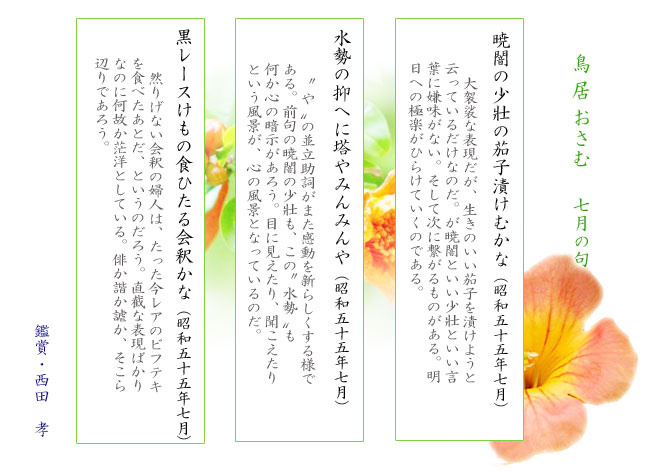 鳥居おさむ　七月の句
暁闇の少壮の茄子漬けむかな（昭和五十五年七月）
大袈裟な表現だが、生きのいい茄子を漬けようと
云っているだけなのだ。が暁闇といい少壮といい言
葉に嫌味がない。そして次に繋がるものがある。明
日への極楽がひらけていくのである。
水勢の抑へに塔やみんみんや（昭和五十五年七月）
〝や〟の並立助詞がまた感動を新らしくする様で
ある。前句の暁闇の少壮も、この〝水勢〟も
何か心の暗示があろう。目に見えたり、聞こえたり
という風景が、心の風景となっているのだ。
黒レースけもの食ひたる会釈かな（昭和五十五年七月）
然りげない会釈の婦人は、たった今レアのビフテキ
を食べたあとだ、というのだろう。直截な表現ばかり
なのに何故か茫洋としている。俳か諧か謔か、そこら
辺りであろう。
鑑賞・西田　孝